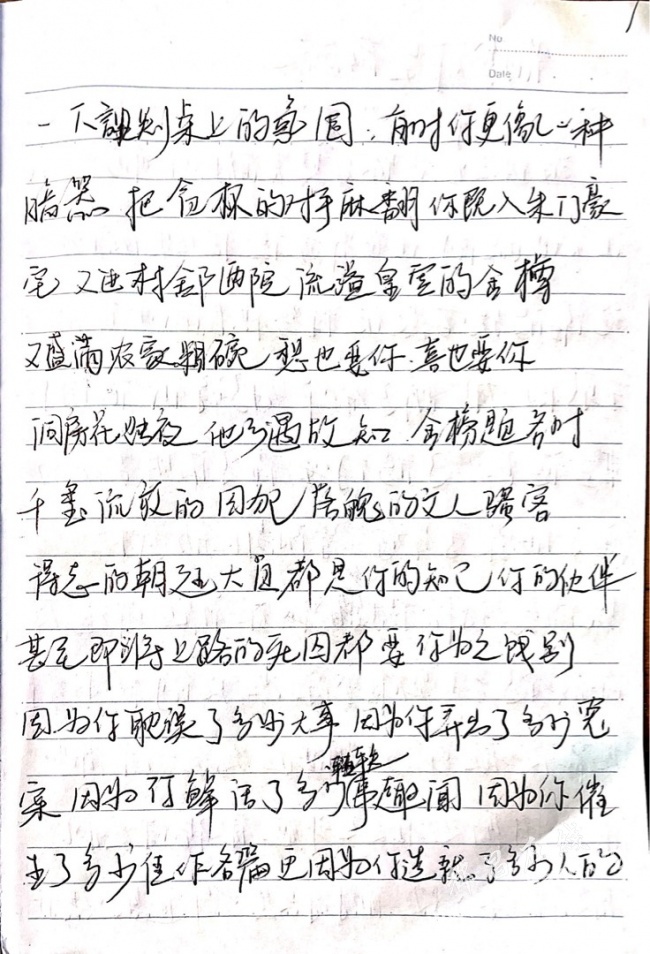 No
Date
一下谈判桌上的氛围，有时你更像一种
暗器 把贪杯的对手麻翻 你既入朱门豪
宅 又进村郭酒院 流溢皇室的金樽
又盛满农家粗碗 愁也要你 喜也要你
洞房花烛夜 他乡遇故知 金榜题名时
千里流放的囚犯 落魄的文人骚客
得志的朝廷大员都是你的知己你的伙伴
甚至即将上路的死囚都要你为之饯别
因为你耽误了多少大事 因为你弄出了多少冤
案 因为你鲜活了多少轶事趣闻 因为你催
生了多少佳作名篇更因为你造就了多少人的